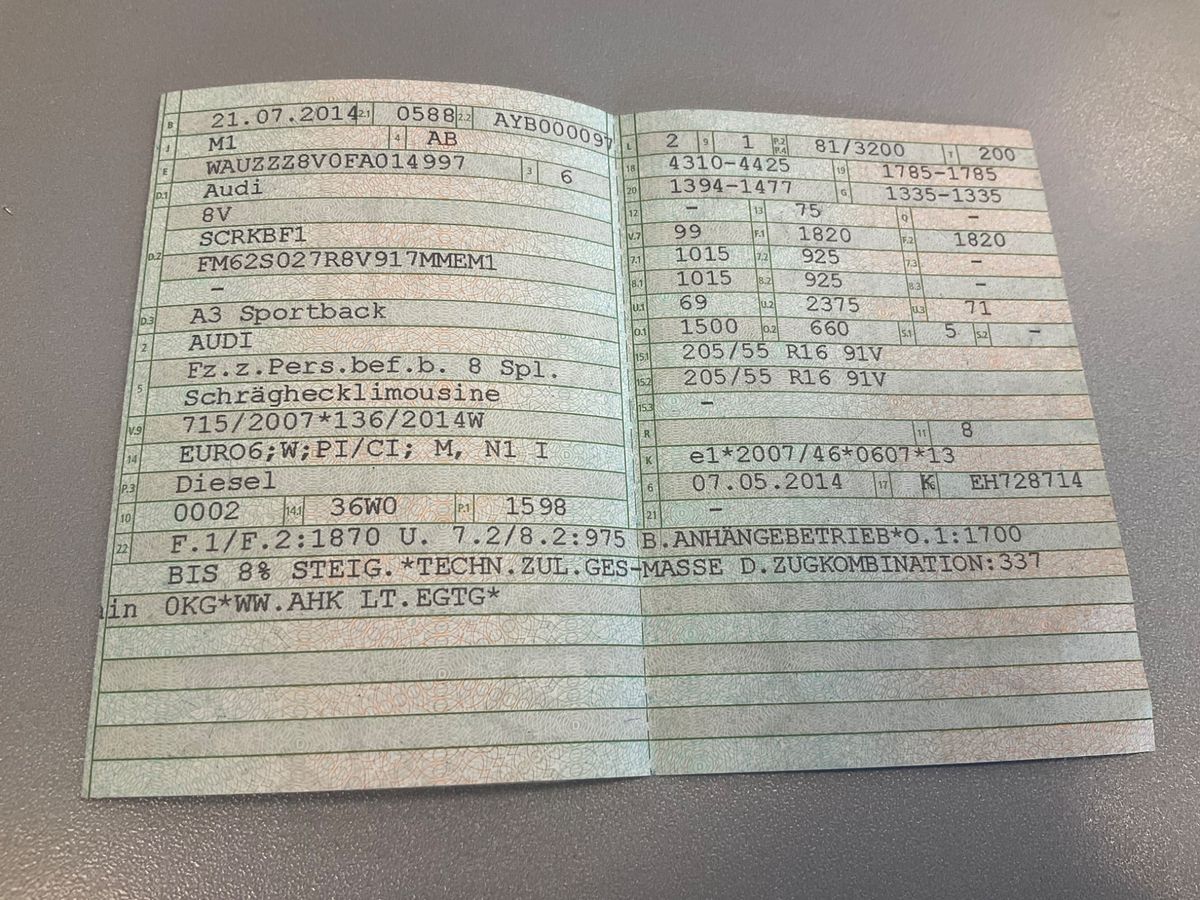 B 21.07.2014 2.1 0588 2.2 AYB000097
J M1 4 AB
E WAUZZZ8V0FA014997 3 6
D.1 Audi
8V
SCRKBF1
D.2 FM62S027R8V917MMEM1
–
D.3 A3 Sportback
2 AUDI
Fz.z.Pers.bef.b. 8 Spl.
5 Schräghecklimousine
V.9 715/2007*136/2014W
14 EURO6;W;PI/CI; M, N1 I
P.3 Diesel
10 0002 14.1 36W0 P.1 1598
L 2 9 1 P.2 P.4 81/3200 T 200
18 4310-4425 19 1785-1785
20 1394-1477 G 1335-1335
12 – 13 75 Q –
V.7 99 F.1 1820 F.2 1820
7.1 1015 7.2 925 7.3 –
8.1 1015 8.2 925 8.3 –
U.1 69 U.2 2375 U.3 71
O.1 1500 O.2 660 S.1 5 S.2 –
15.1 205/55 R16 91V
15.2 205/55 R16 91V
15.3 –
R 11 8
K e1*2007/46*0607*13
6 07.05.2014 17 K 16 EH728714
21 –
22 F.1/F.2:1870 U. 7.2/8.2:975 B.ANHÄNGEBETRIEB*O.1:1700
BIS 8% STEIG.*TECHN.ZUL.GES-MASSE D.ZUGKOMBINATION:337
0KG*WW.AHK LT.EGTG*